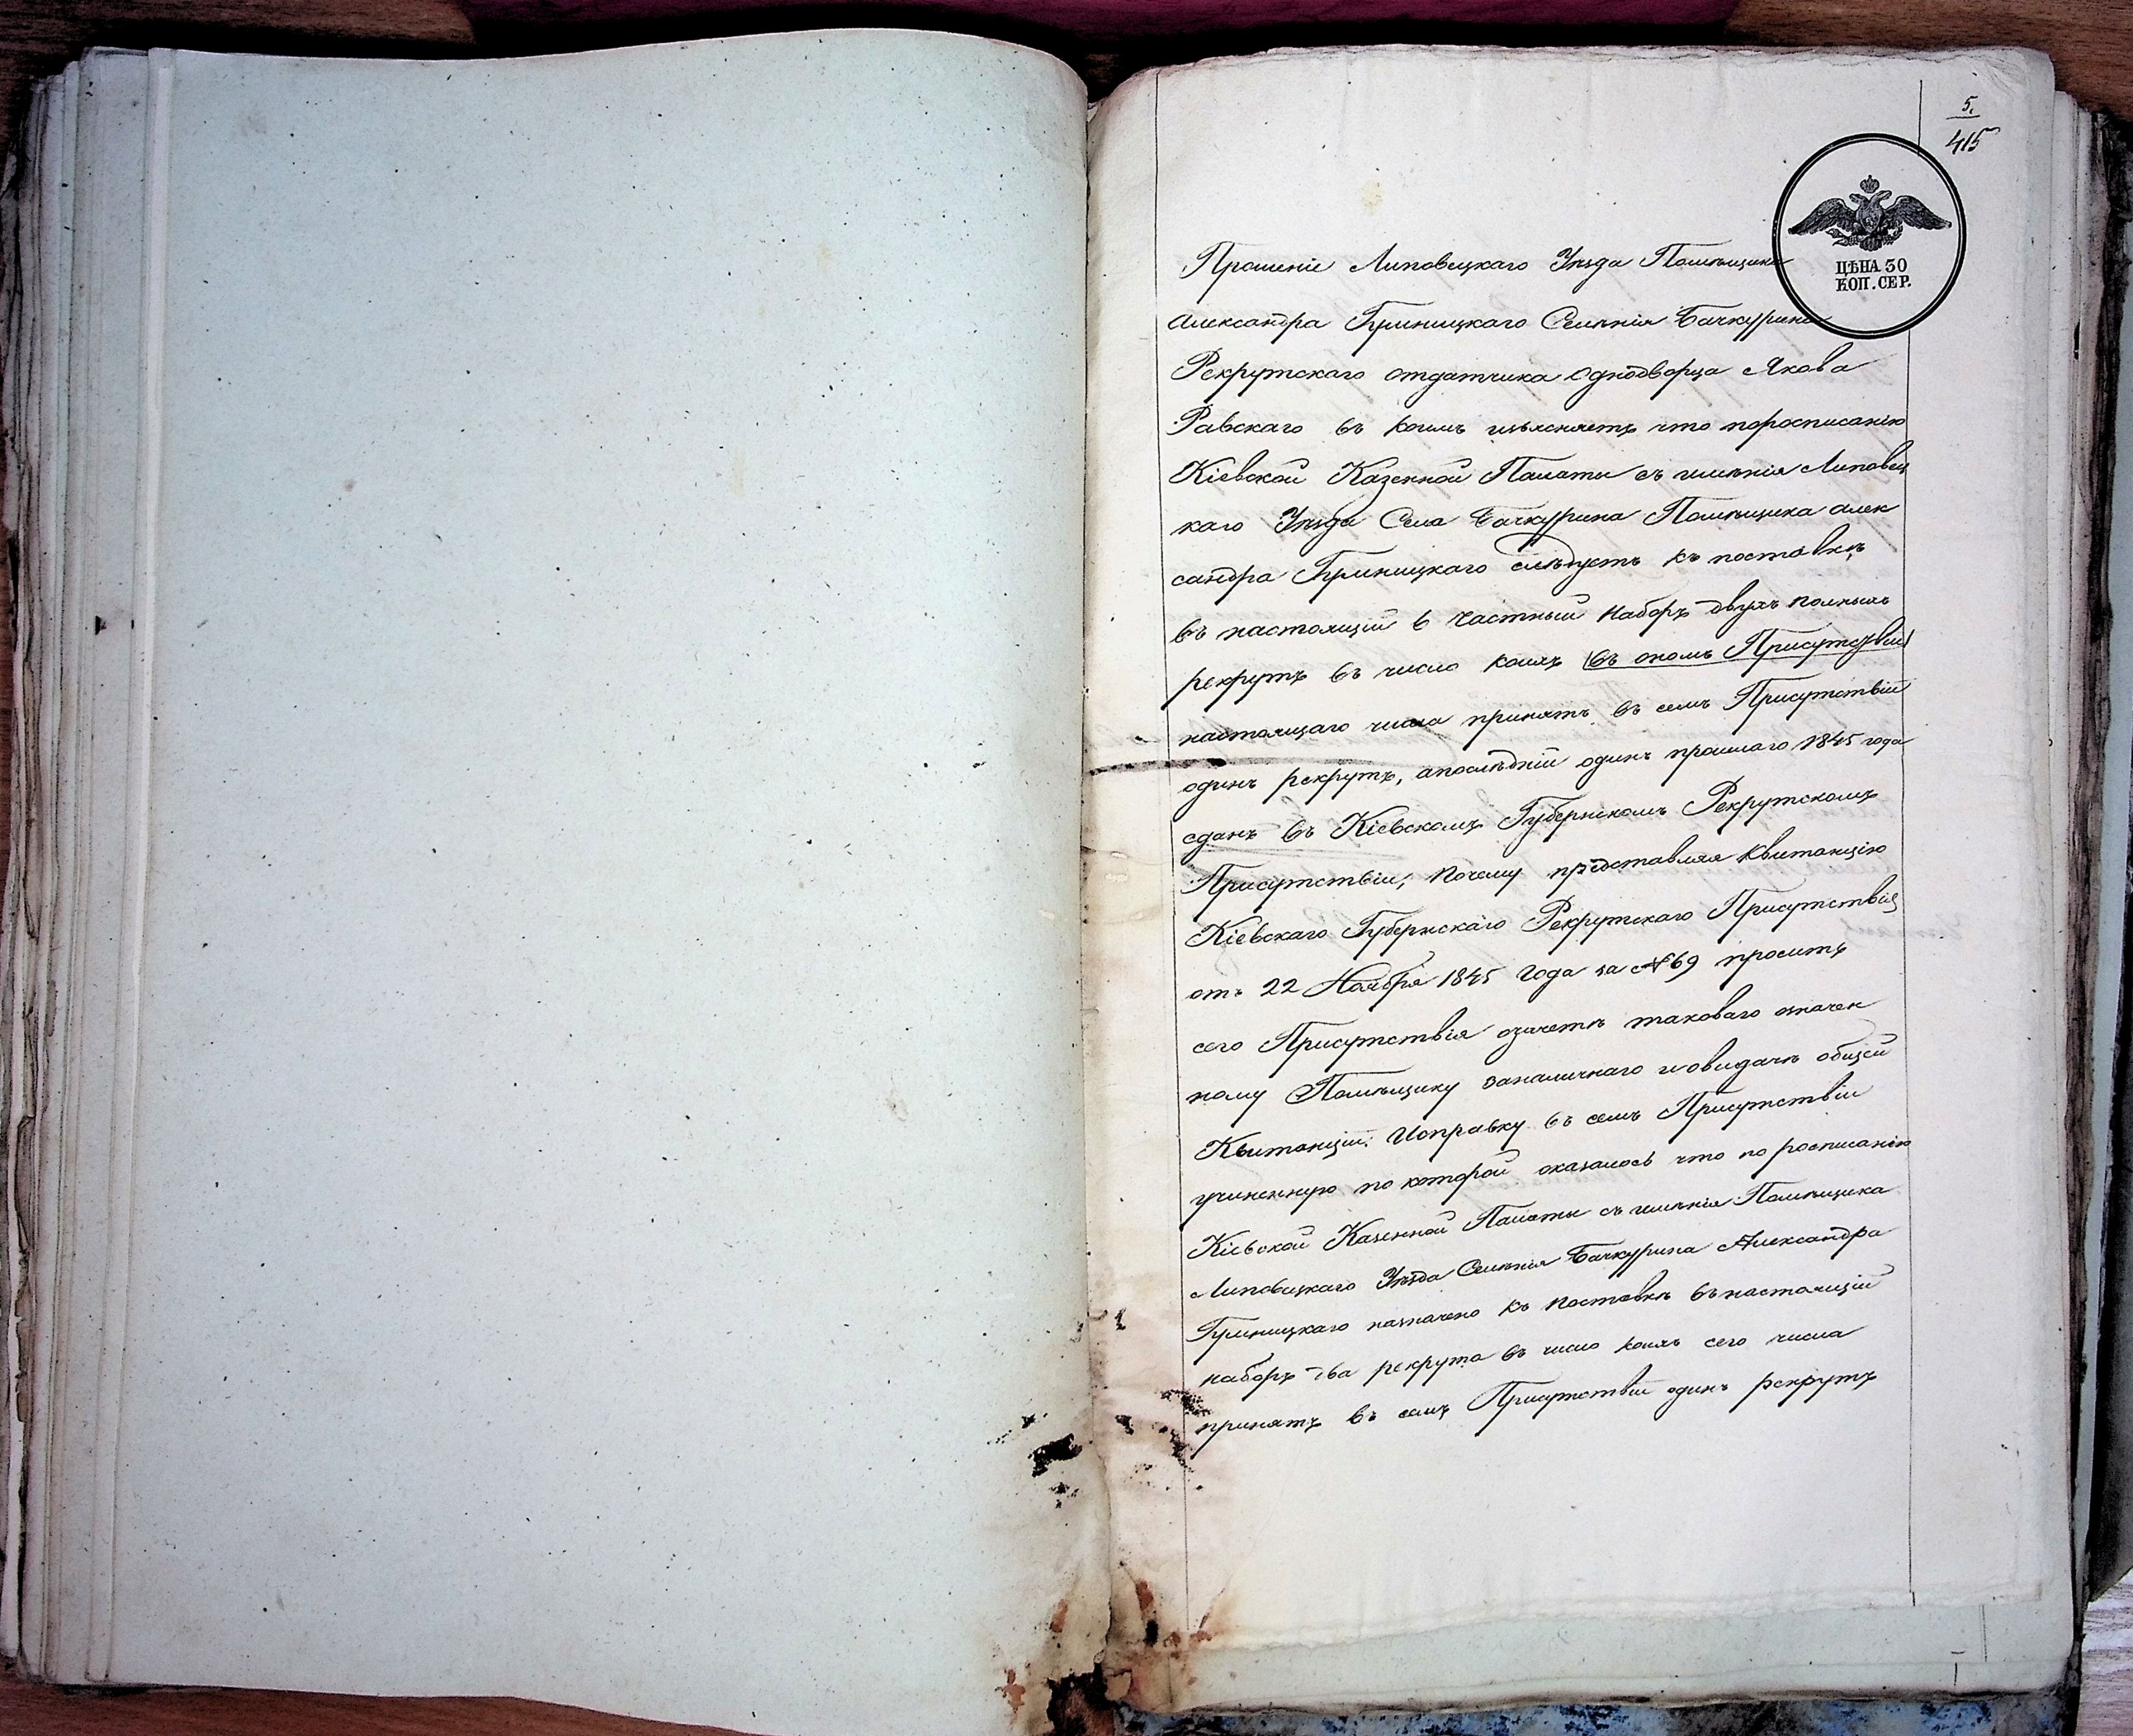 5.
415
ЦѢНА 30
КОП. СЕР.
Прошеніе Липовецкаго Уѣзда Помѣщика
Александра Гриницкаго Селенія Бачкурина
Рекрутскаго отдатчика Однодворца Якова
Равскаго въ коимъ изъясняетъ что поросписанію
Кіевской Казенной Палаты съ имѣнія Липовец
каго Уѣзда Села Бачкурина Помѣщика Алек
сандра Гриницкаго слѣдуетъ къ поставкѣ
въ настоящій 6 частный наборъ двухъ полныхъ
рекрутъ въ число коихъ (въ ономъ Присутствіи)
настоящаго числа принятъ въ семъ Присутствіи
одинъ рекрутъ, апослѣдній одинъ прошлаго 1845 года
сданъ въ Кіевскомъ Губернскомъ Рекрутскомъ
Присутствіи; почему представляя квитанцію
Кіевскаго Губернскаго Рекрутскаго Присутствія
отъ 22 Ноября 1845 года за № 69 проситъ
сего Присутствія озачетѣ таковаго означен
ному Помѣщику заналичнаго и овидачѣ общей
Квитанціи: Исправку въ семъ Присутствіи
учиненную по которой оказалось что по росписанію
Кіевской Казенной Палаты съ имѣнія Помѣщика
Липовецкаго Уѣзда Селенія Бачкурина Александра
Гриницкаго назначено къ поставкѣ въ настоящій
наборъ два рекрута въ число коихъ сего числа
принятъ въ семъ Присутствіи одинъ рекрутъ